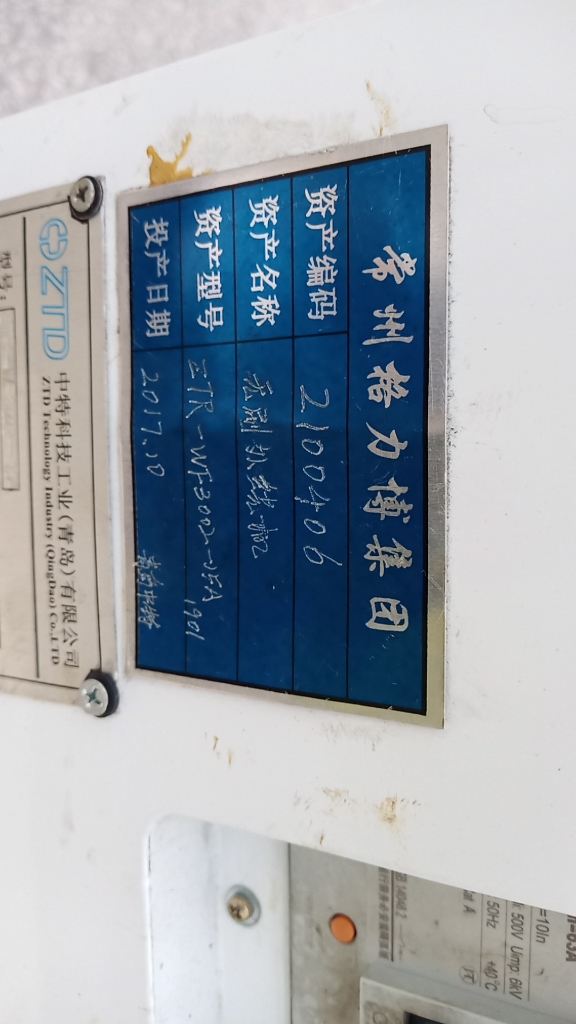 常州格力博集团
资产编码 2100406
资产名称 无刷机绕线机
资产型号 ZTR-WF3002-05A 1901
投产日期 2017.10 青岛中特
ZTD 中特科技工业(青岛)有限公司
ZTD Technology Industry (QingDao) Co.,LTD
型号:
-63A
=10In
500V Uimp 6kV
50Hz +40°C
Cat A
GB 14048.2